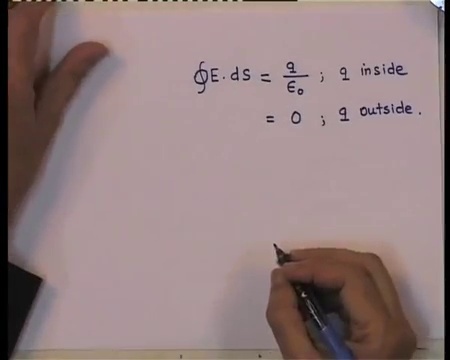 ∮E.ds = q/ϵ₀ ; q inside
= 0 ; q outside.